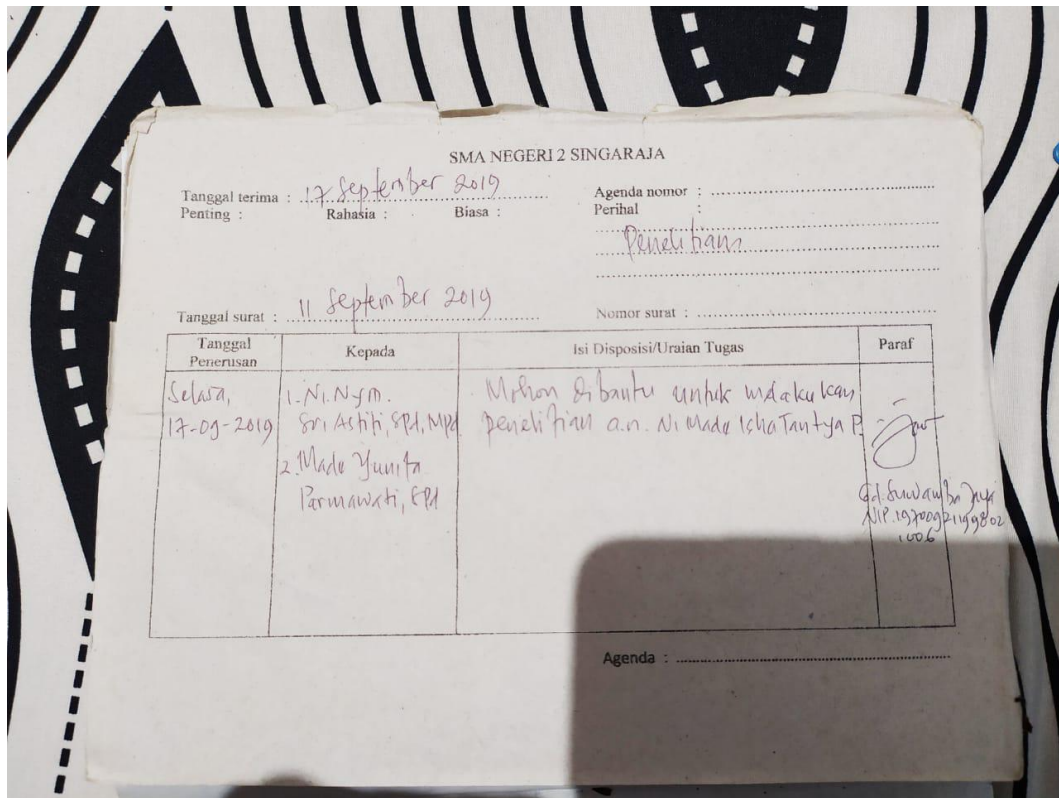 SMA NEGERI 2 SINGARAJA
Tanggal terima : 17 September 2019
Penting : Rahasia : Biasa :
Agenda nomor :
Perihal :
Penelitian
Tanggal surat : 11 September 2019
Nomor surat :
Tanggal Penerusan
Kepada
Isi Disposisi/Uraian Tugas
Paraf
Selasa,
17-09-2019
1. Ni. Nym.
Sri Astiti, SPd, MPd
2. Made Yunita
Parmawati, SPd
Mohon dibantu untuk melakukan
penelitian a.n. Ni Made Isha Tantya P.
Gd. Suwamba Jaya
NIP. 19700921199802
1006
Agenda :